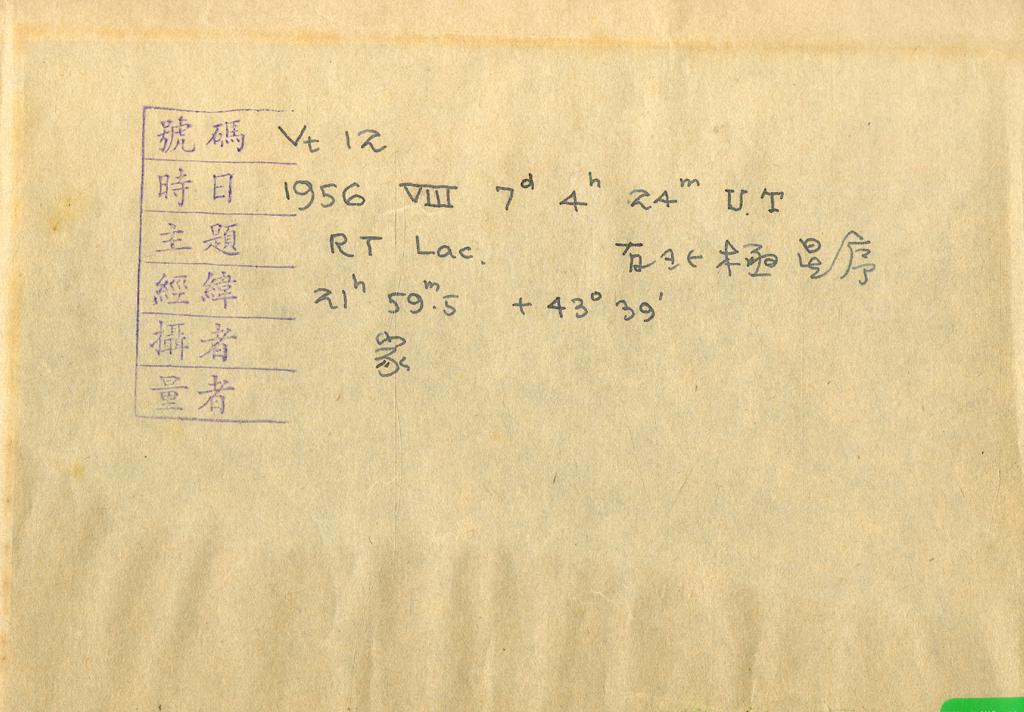 號碼 Vt 12
時日 1956 VIII 7d 4h 24m U.T
主題 RT Lac. 有北極星序
經緯 21h 59m.5 +43° 39'
攝者 家
量者